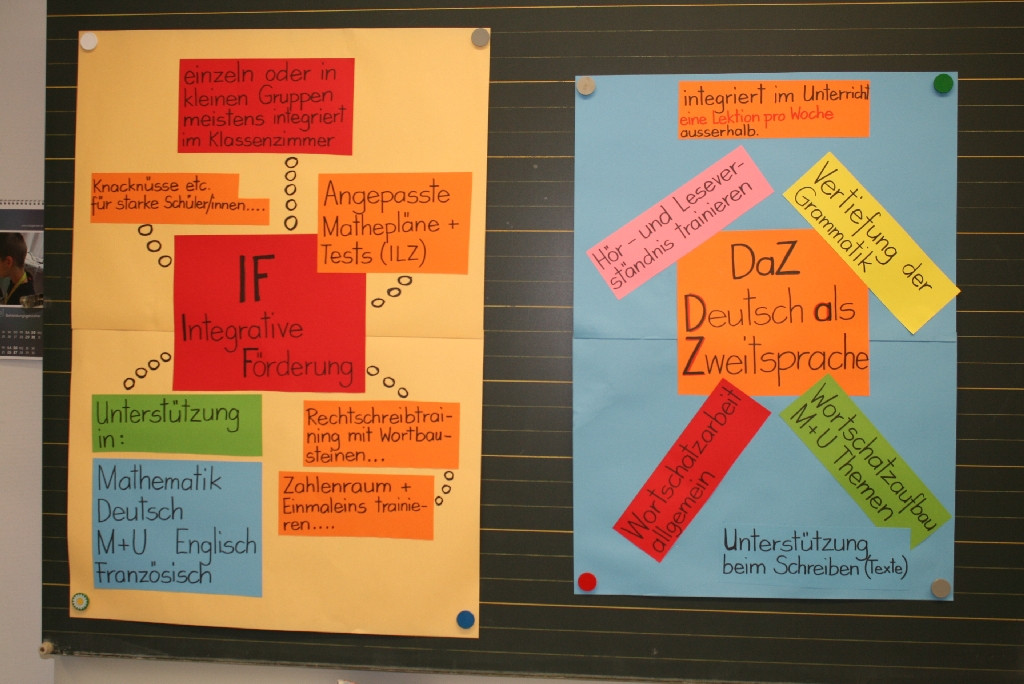 einzeln oder in
kleinen Gruppen
meistens integriert
im Klassenzimmer
Knacknüsse etc.
für starke Schüler/innen....
Angepasste
Mathepläne +
Tests (ILZ)
IF
Integrative
Förderung
Unterstützung
in:
Mathematik
Deutsch
M+U Englisch
Französisch
Rechtschreibtrai-
ning mit Wortbau-
steinen...
Zahlenraum +
Einmaleins trainie-
ren....
integriert im Unterricht
eine Lektion pro Woche
ausserhalb.
Hör- und Lesever-
ständnis trainieren
Vertiefung der
Grammatik
DaZ
Deutsch als
Zweitsprache
Wortschatzarbeit
allgemein
Wortschatzaufbau
M+U Themen
Unterstützung
beim Schreiben (Texte)